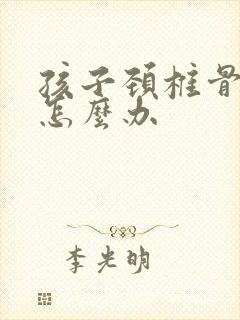 孩子頚椎骨
怎麼办
李光明